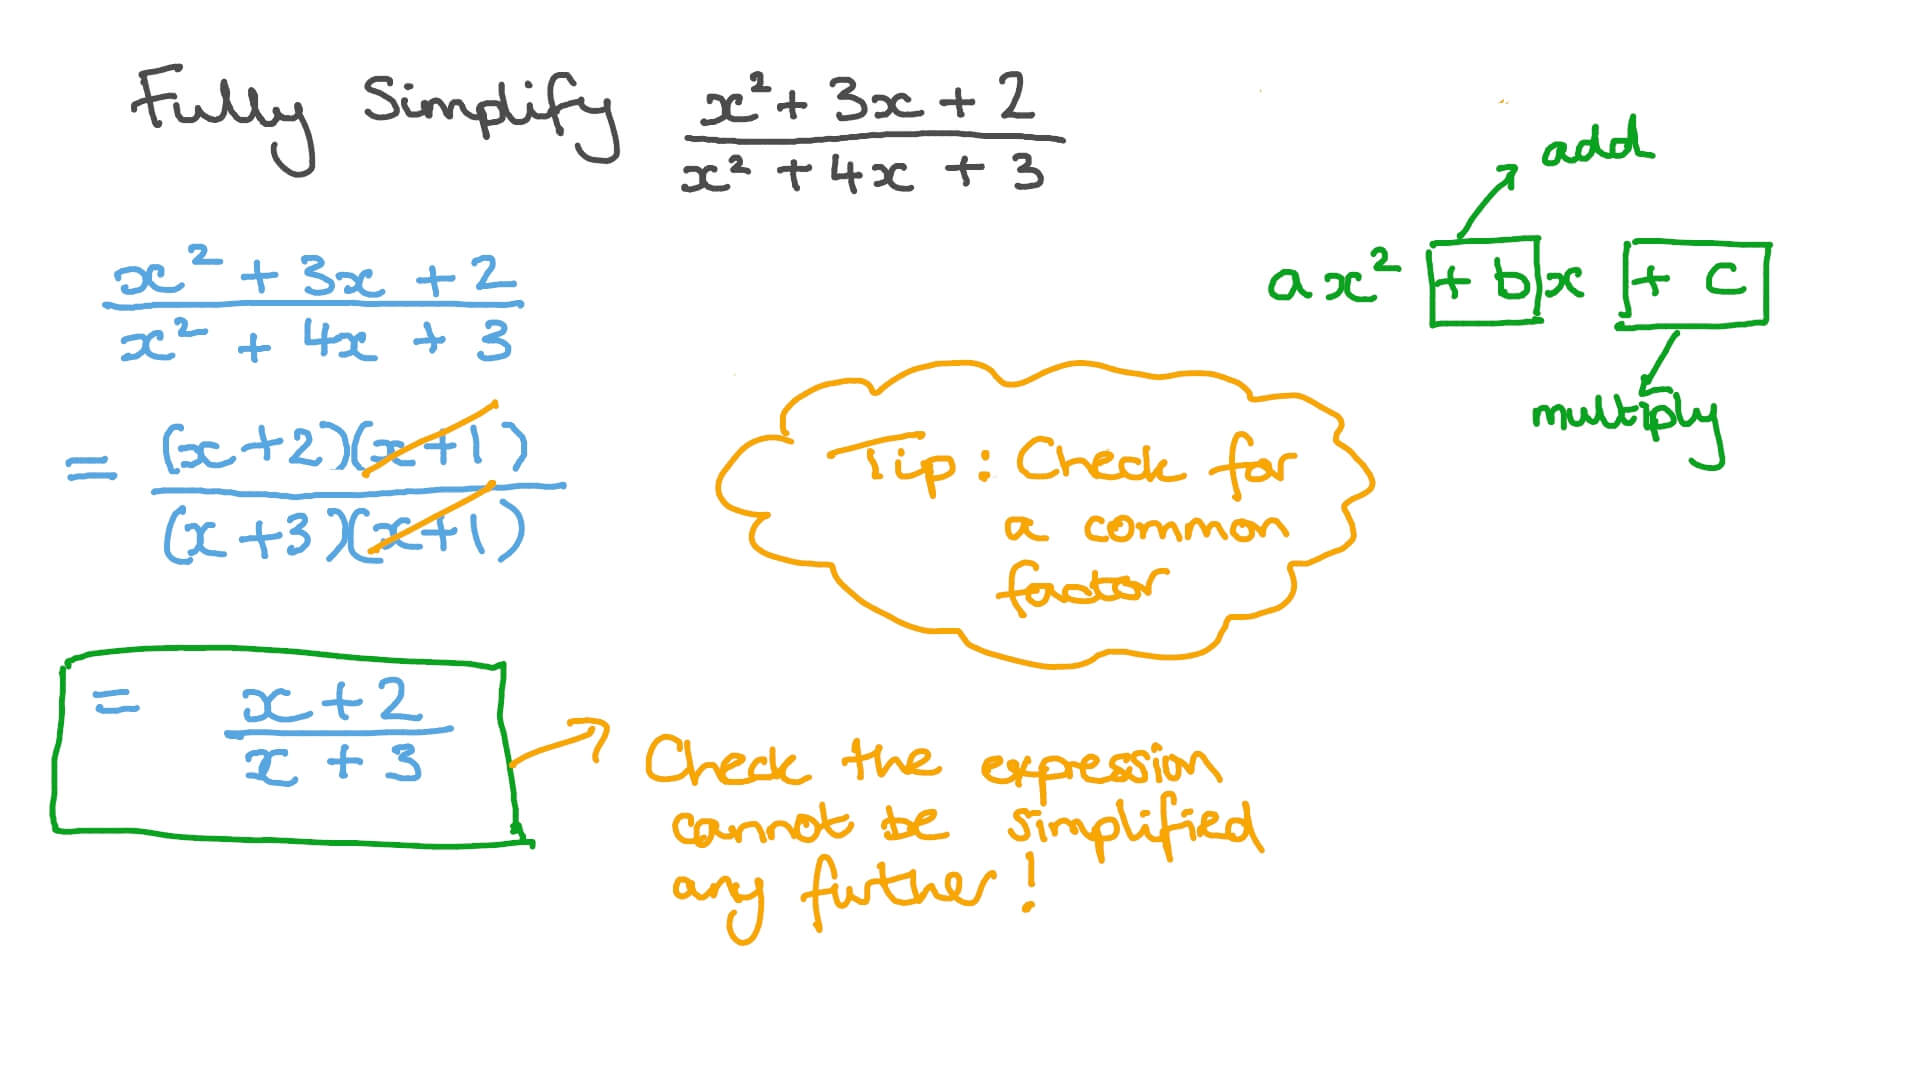 Fully Simplify x² + 3x + 2
x² + 4x + 3
add
ax² + bx + c
multiply
x² + 3x + 2
x² + 4x + 3
= (x+2)(x+1)
(x+3)(x+1)
Tip: Check for
a common
factor
= x+2
x + 3
Check the expression
cannot be simplified
any further!